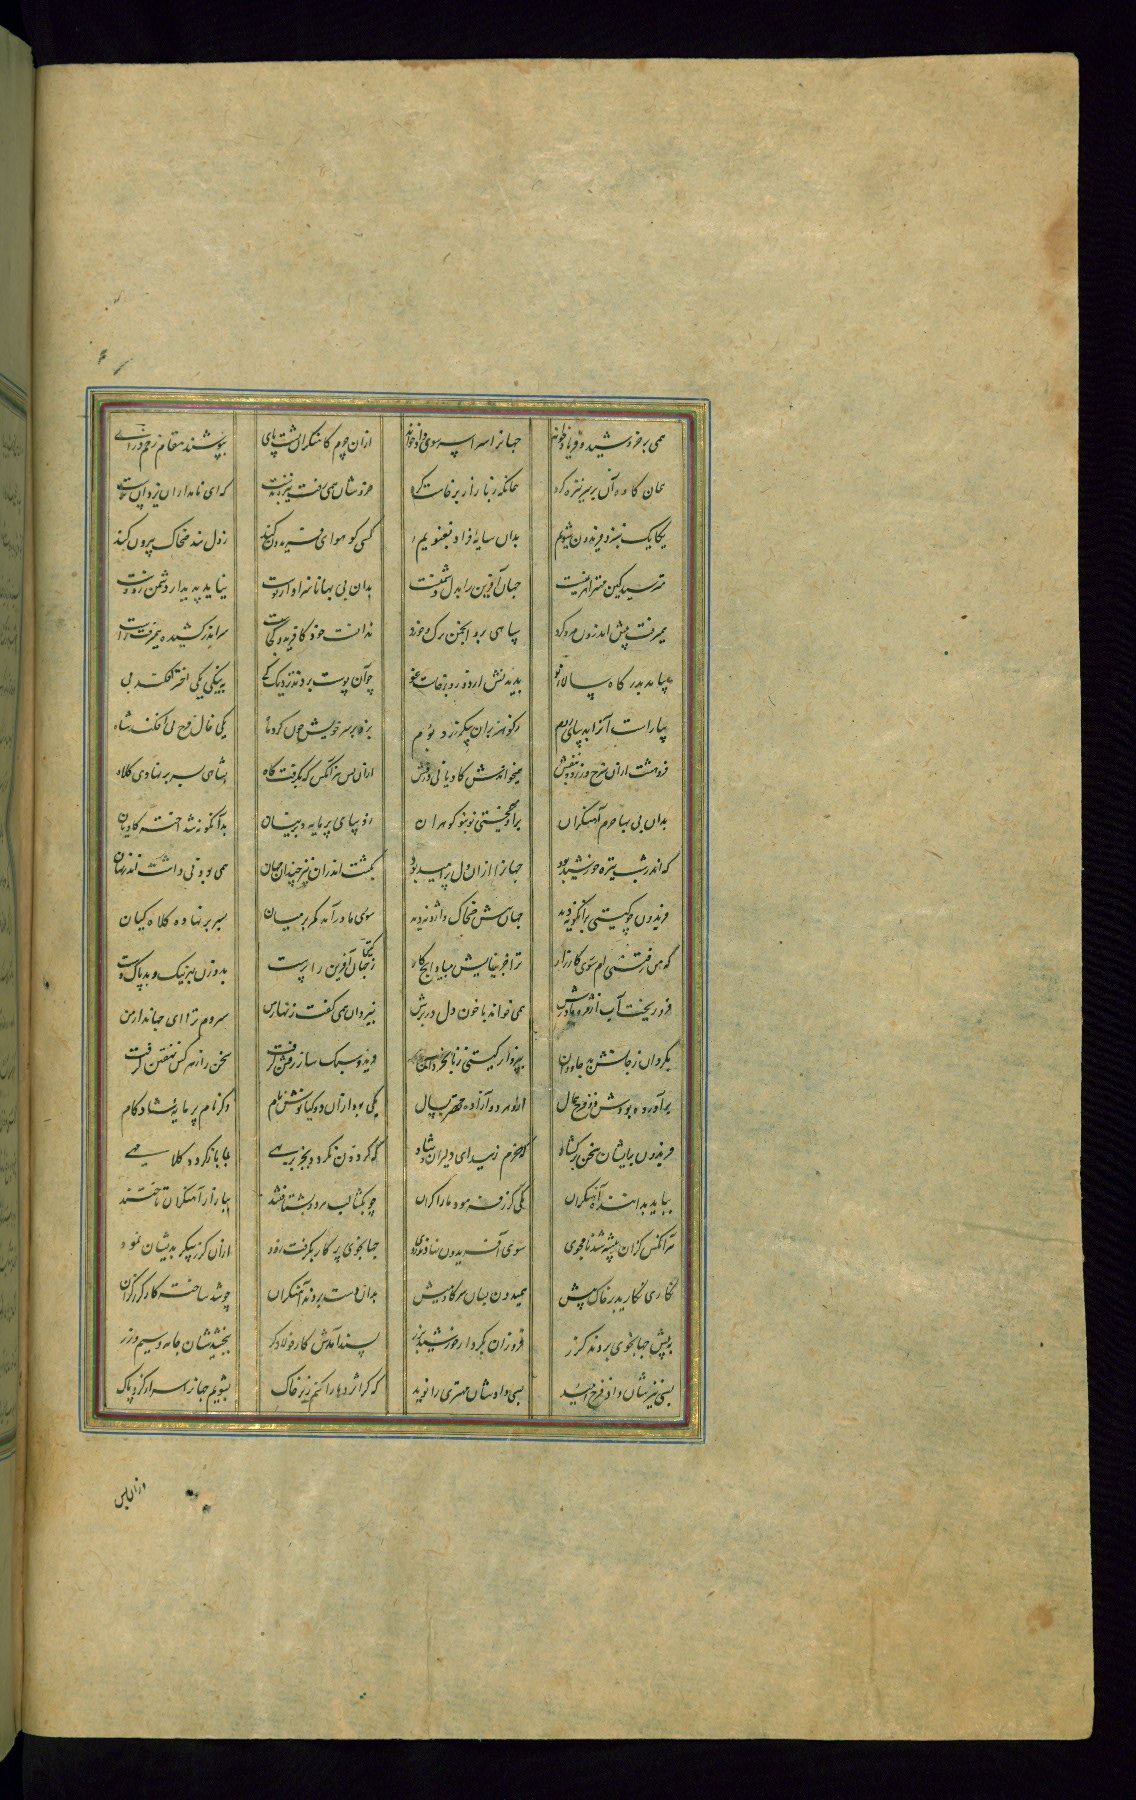 همی بر خروشید و فریاد خواند جهانرا سراسر سوی داد خواند ازان چرم کاهنگران پشت پای بپوشند هنگام زخم درای
همان کاوه آن بر سر نیزه کرد همانگه ز بازار برخاست کرد خروشان همی رفت نیزه بدست که ای نامداران یزدان پرست
یکایک بنزد فریدون شویم بدان سایۀ فر او بغنویم کسی کو هوای فریدون کند ز دل بند ضحاک بیرون کند
جهان آفرین را بدل دشمنست بدان بی بها ناسزاوار پوست
همیرفت پیش اندرون مرد کرد سپاهی برو انجمن شد نه خرد ندانست خود کافریدون کجاست سر اندر کشید و همیرفت راست
بیامد بدرگاه سالار نو بدیدنش از دور برخاست غو چو آن پوست بر نیزه بر دید کی به نیکی یکی اختر افکند پی
بیاراست آنرا بدیبای روم ز گوهر بران پیکر زر بوم بزد بر سر خویش چون گرد ماه یکی فال فرخ پی افکند شاه
فروهشت ازان سرخ و زرد و بنفش همیخواندش کاویانی درفش ازان پس هر آنکس که بگرفت گاه بشاهی بسر بر نهادی کلاه
بدان بی بها چرم آهنگران برآویختی نو بنو گوهران ز دیبای پرمایه و پرنیان بدانگونه شد اختر کاویان
که اندر شب تیره خورشید بود جهانرا ازان دل پرامید بود بگشت اندرین نیز چندی جهان همی بودنی داشت اندر نهان
فریدون چو گیتی برانگونه دید جهان پیش ضحاک وارونه دید سوی مادر آمد کمر بر میان بسر بر نهاده کلاه کیان
که من رفتنی ام سوی کارزار ترا جز نیایش مباد ایچ کار ز گیتی جهان آفرین را پرست بدو زن بهر نیک و بد پاک دست
فرو ریخت آب از مژه مادرش همی خواند با خون دل داورش بیزدان همی گفت زنهار من سپردم ترا ای جهاندار من
بگردان ز جانش بد جاودان بپرداز گیتی ز نابخردان فریدون سبک ساز رفتن گرفت سخن را ز هر کس نهفتن گرفت
برادر دو بودش دو فرخ همال ازو هر دو آزاده مهتر بسال یکی بود ازان دو کیانوش نام دگر نام پرمایه شادکام
فریدون بدیشان سخن بر گشاد که خرم زیید ای دلیران و شاد که گردون نگردد بجز بر بهی بما باز گردد کلاه مهی
بیارید داننده آهنگران یکی گرز فرمود ما را گران چو بگشاد لب هر دو بشتافتند ببازار آهنگران تاختند
هر آنکس کزان پیشه شد نامجوی سوی آفریدون نهادند روی جهانجوی پرگار بگرفت زود ازان گرز پیکر بدیشان نمود
نگاری نگارید بر خاک پیش همیدون بسان سر گاومیش بدان دست بردند آهنگران چو شد ساخته کار گرز گران
بپیش جهانجوی بردند گرز فروزان بکردار خورشید برز پسند آمدش کار پولادگر ببخشیدشان جامه و سیم و زر
بسی نیزشان داد فرخ امید بسی دادشان مهتری را نوید که گر اژدها را کنم زیر خاک بشویم جهانرا سراسر ز گرد پاک
وزان پس